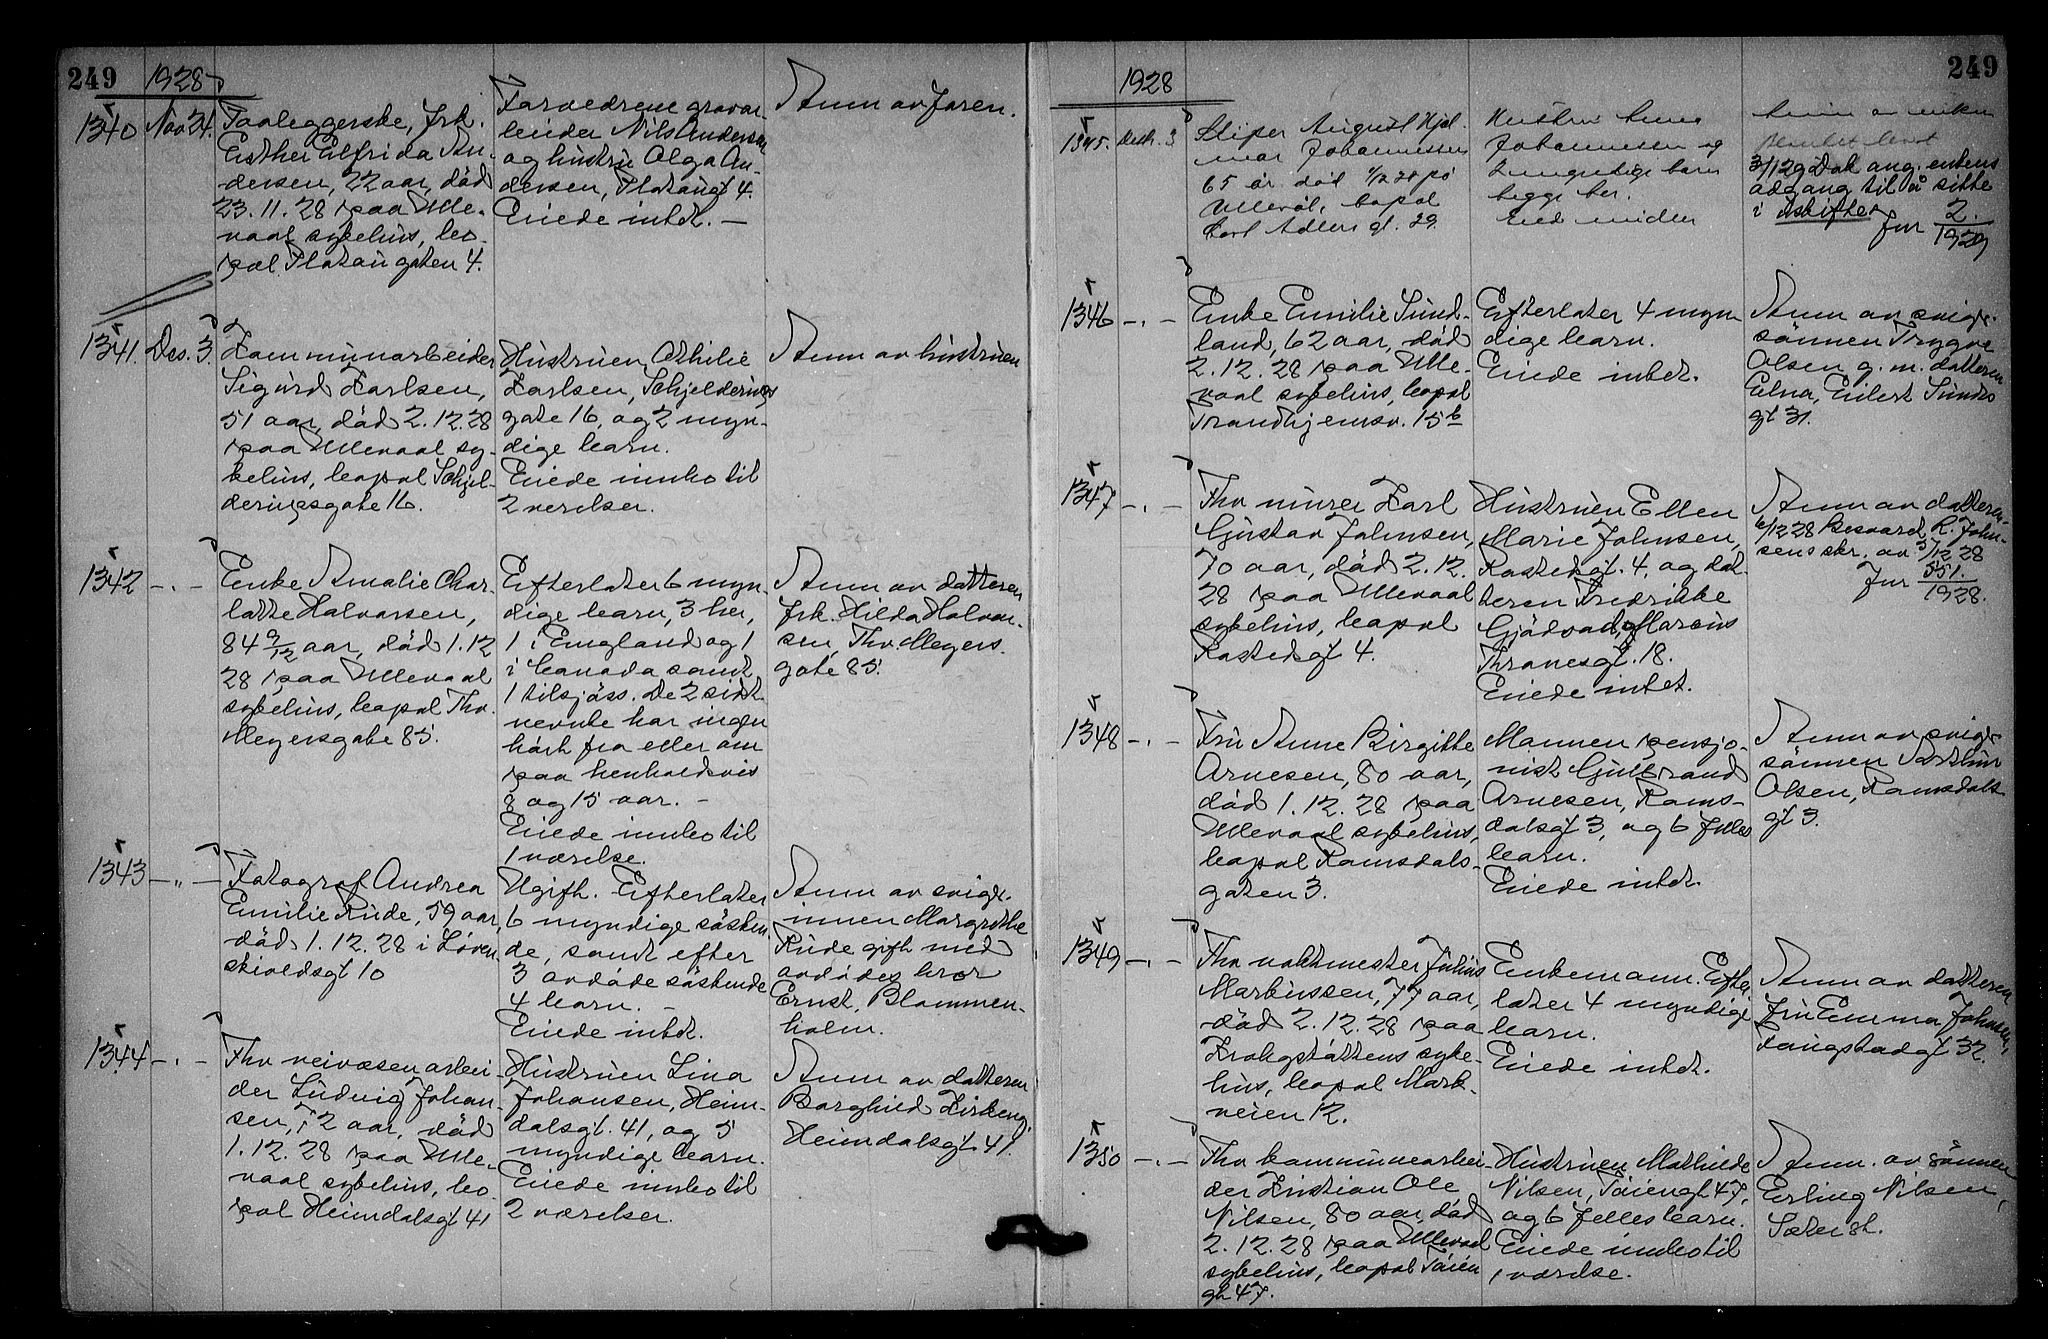 249
1928
1340 Nov 24.
Paaleggerske, frk.
Esther Elfrida An-
dersen, 22 aar, död
23.11.28 paa Ulle-
vaal sykehus, bo-
pæl Platangaten 4.
Farvedrene gravar-
beider Nils Andersen
og hustru Olga An-
dersen, Platangt 4.
Eiede intet. —
Anm av faren.
1341. Des. 3.
Kommunearbeider
Sigurd Karlsen,
51 aar, död 2.12.28
paa Ullevaal sy-
kehus, bopæl Schjel-
derupsgate 16.
Hustruen Othilie
Karlsen, Schjelderups
gate 16, og 2 myn-
dige barn.
Eiede innbo til
2 verelser.
Anm av hustruen
1342 — . —
Enke Amalie Char-
lotte Halvorsen,
84 9/12 aar, död 1.12
28 paa Ullevaal
sykehus, bopæl Thv.
Meyersgate 85.
Efterlater 6 myn-
dige barn, 3 her,
1 i England og 1
i Canada samt
1 tilsjöss. De 2 sidst
nevnte har ingen
hört fra eller om
paa henholdsvis
8 og 15 aar. —
Eiede innbo til
1 værelse.
Anm av datteren
frk. Hilda Halvor-
sen, Thv. Meyers-
gate 85.
1343 — " —
Fotograf Andrea
Emilie Rude, 59 aar,
död 1.12.28 i Löven-
skioldsgt 10
Ugift. Efterlater
6 myndige sösken-
de, samt efter
3 avdöde söskende
4 barn. —
Eiede intet.
Anm av sviger-
innen Margrethe
Rude gift med
avdödes bror
Ernst, Blommen-
holm.
1344 — . —
Fhv veivæsenarbei-
der Ludvig Johan-
sen, 72 aar, död
1.12.28 paa Ulle-
vaal sykehus, bo-
pæl Heimdalsgt 41
Hustruen Lina
Johansen, Heim-
dalsgt. 41, og 5
myndige barn.
Eiede innbo til
2 værelser.
Anm av datteren
Borghild Kirkeng,
Heimdalsgt 41.
249
1928
1345. Desbr. 3
Sliper August Hjal-
mar Johannessen
65 år död 1/12 28 på
Ullevål, bopæl
Cort Adlers gt. 29.
Hustru
Johannessen og
2 umyndige barn
begge her.
Anm av enken
3/1 29 Dok ang. enkens
adgang til å sitte
i uskifte
Jnr 2./1929
1346 — . —
Enke Emilie Sund-
land, 62 aar, död
2.12.28 paa Ulle-
vaal sykehus, bopæl
Trondhjemsv. 15 b
Efterlater 4 myn-
dige barn.
Eiede intet.
Anm av sviger-
sönnen Trygve
Olsen g. m. datteren
Elna, Eilert Sundts
gt 31.
1347 — . —
Fhv murer Karl
Gustav Johnsen,
70 aar, död 2.12.
28 paa Ullevaal
sykehus, bopæl
Rostedsgt 4.
Hustruen Ellen
Marie Johnsen,
Rostedsgt. 4, og dat-
teren Fredrikke
Gjödvad, Marcus
Thranesgt. 18.
Eiede intet.
Anm av datteren
6/12 28 Besvaret R. John-
sens skr. av 5/12 28
Jnr 551./1928.
1348 — . —
Fru Anne Birgitte
Arnesen, 80 aar,
död 1.12.28 paa
Ullevaal sykehus,
bopæl Ramsdals-
gaten 3.
Mannen pensjo-
nist Gulbrand
Arnesen, Rams-
dalsgt 3, og 6 felles
barn.
Eiede intet.
Anm av sviger-
sönnen Arthur
Olsen, Ramsdals
gt 3.
1349 — . —
Fhv vaktmester Julius
Markussen, 77 aar,
död 2.12.28 paa
Krohgstöttens syke-
hus, bopæl Mark-
veien 12.
Enkemann. Efter-
later 4 myndige
barn.
Eiede intet.
Anm av datteren
fru Emma Johnsen,
Langstadgt 32.
1350 — . —
Fhv kommunearbei-
der Kristian Ole
Nilsen, 80 aar, död
2.12.28 paa Ullevaal
sykehus, bopæl Töien
gt 47.
Hustruen Mathilde
Nilsen, Töiengt 47,
og 6 felles barn.
Eiede innbo til
1 værelse.
Anm. av sönnen
Erling Nilsen,
Sæter st.